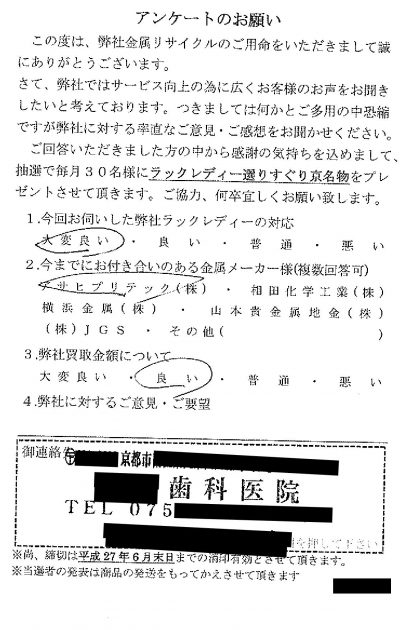 アンケートのお願い
この度は、弊社金属リサイクルのご用命をいただきまして誠
にありがとうございます。
さて、弊社ではサービス向上の為に広くお客様のお声をお聞き
したいと考えております。つきましては何かとご多用の中恐縮
ですが弊社に対する率直なご意見・ご感想をお聞かせください。
ご回答いただきました方の中から感謝の気持ちを込めまして、
抽選で毎月30名様にラックレディー選りすぐり京名物をプレ
ゼントさせて頂きます。ご協力、何卒宜しくお願い致します。
1.今回お伺いした弊社ラックレディーの対応
大変良い ・ 良い ・ 普通 ・ 悪い
2.今までにお付き合いのある金属メーカー様(複数回答可)
アサヒプリテック(株) ・ 相田化学工業(株)
横浜金属(株) ・ 山本貴金属地金(株)
(株)JGS ・ その他( )
3.弊社買取金額について
大変良い ・ 良い ・ 普通 ・ 悪い
4.弊社に対するご意見・ご要望
御連絡先
〒 京都市
歯科医院
TEL 075
を押して下さい
※尚、締切は平成27年6月末日までの消印有効とさせて頂きます。
※当選者の発表は商品の発送をもってかえさせて頂きます